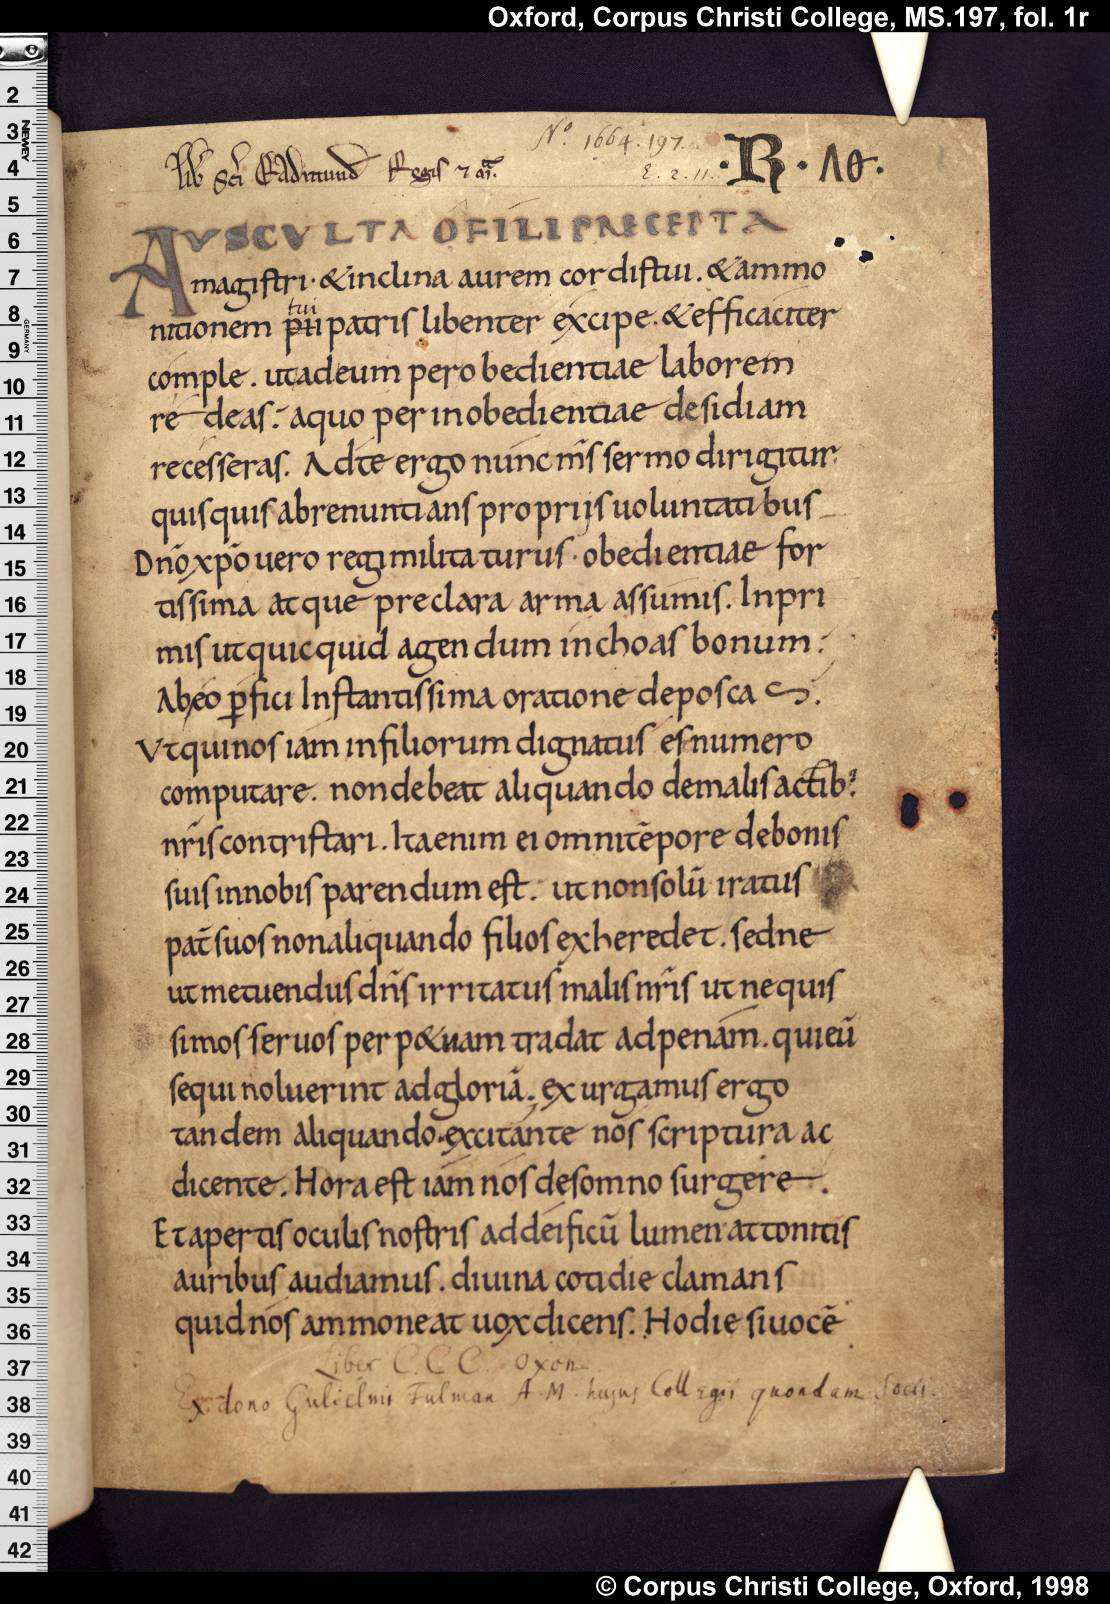 Oxford, Corpus Christi College, MS.197, fol. 1r
Nº. 1664. 197.
lib̄ Sc̄i Eadmund Regis ⁊ m̄r̄.
E. 2. 11.
.R. Λ6.
AUSCULTA O FILI PRECEPTA
magistri · & inclina aurem cordis tui . & ammo
tui
nitionem pii patris libenter excipe . & efficaciter
comple . ut adeum per obedientiae laborem
re deas : aquo per inobedientiae desidiam
recesseras . Adte ergo nunc m̄s sermo dirigitur
quisquis abrenuntians propriis uoluntatibus
Dn̄o xp̄o uero regi militaturus · obedientiae for
tissima atque preclara arma assumis . Inpri
mis ut quicquid agendum inchoas bonum :
Abeo p̱fici Instantissima oratione deposcas .
Ut qui nos iam in filiorum dignatus es numero
computare . non debeat aliquando demalis actib;
nr̄is contristari . Ita enim ei omni tēpore debonis
suis innobis parendum est . ut non solū iratus
pat̄ suos non aliquando filios exheredet . sed ne
ut metuendus dn̄s irritatus malis nr̄is ut nequis
simos seruos per p&uam tradat adpenam . qui eū
sequi noluerint adgloriā . exurgamus ergo
tandem aliquando · excitante nos scriptura ac
dicente . Hora est iam nos desomno surgere .
Et apertis oculis nostris ad deificū lumen attonitis
auribus audiamus . diuina cotidie clamans
quid nos ammoneat uox dicens . Hodie si uocē
Liber C. C. C. Oxon
Ex dono Gulielmi Fulman A. M. hujus Collegii quondam Socii.
2
3
4
5
6
7
8
9
10
11
12
13
14
15
16
17
18
19
20
21
22
23
24
25
26
27
28
29
30
31
32
33
34
35
36
37
38
39
40
41
42
NEWEY
GERMANY
© Corpus Christi College, Oxford, 1998